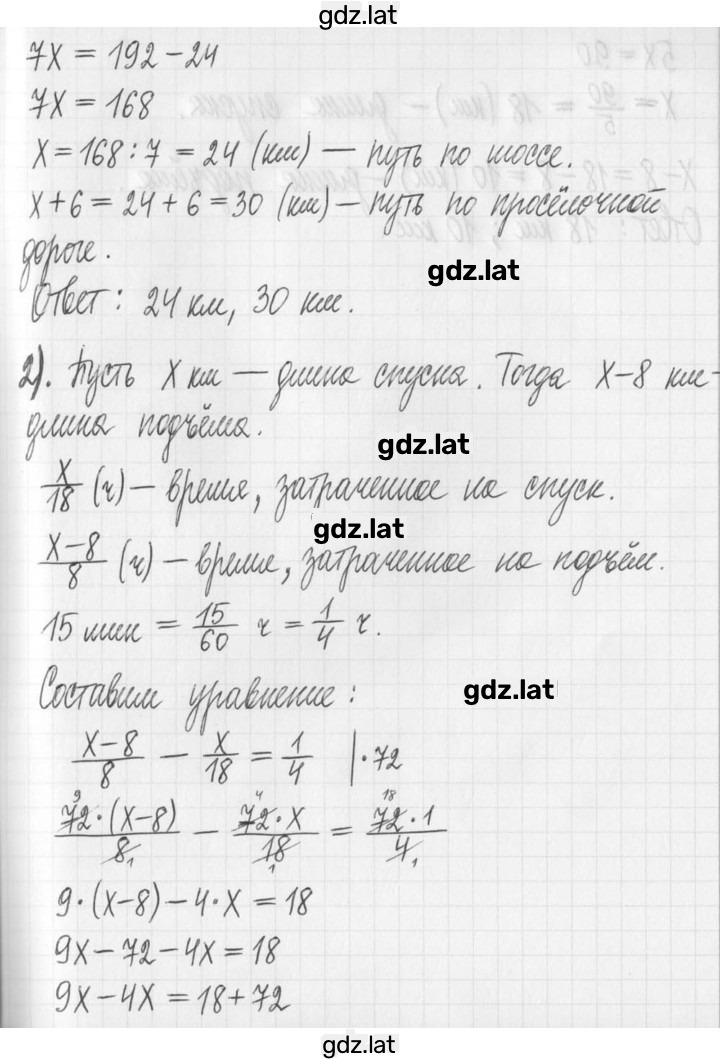 gdz.lat
7x = 192 − 24
7x = 168
x = 168 : 7 = 24 (км) — путь по шоссе.
x + 6 = 24 + 6 = 30 (км) — путь по просёлочной
дороге.
gdz.lat
Ответ: 24 км, 30 км.
2). Пусть x км — длина спуска. Тогда x−8 км-
длина подъёма.
gdz.lat
x/18 (ч) — время, затраченное на спуск.
gdz.lat
x−8/8 (ч) — время, затраченное на подъём.
15 мин = 15/60 ч = 1/4 ч.
Составим уравнение:
gdz.lat
x−8/8 − x/18 = 1/4 |·72
9 4 18
72·(x−8)/8 − 72·x/18 = 72·1/4
1 1 1
9·(x−8) − 4·x = 18
9x − 72 − 4x = 18
9x − 4x = 18 + 72
gdz.lat